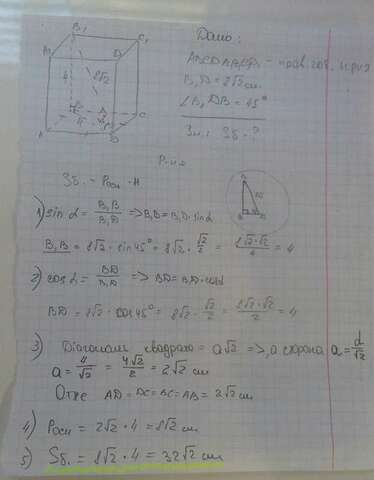 Дано:
ABCDA₁B₁C₁D₁ - прав. чот. призма
B₁D = 8√2 см
∠B₁DB = 45°
Зн.: Sб. - ?
Р-ня
Sб. = Pосн · H
1) sin α = B₁B / B₁D => B₁B = B₁D · sin α
B₁B = 8√2 · sin 45° = 8√2 · √2/2 =
2) cos α = BD / B₁D => BD = B₁D · cos α
BD = 8√2 · cos 45° = 8√2 · √2/2 = 8√2·√2 / 2 = 4
3) Діагональ квадрата = a√2 =>, а сторона a = d/√2
a = 4/√2 = 4√2/2 = 2√2 см
Отже AD = DC = BC = AB = 2√2 см
4) Pосн = 2√2 · 4 = 8√2 см
5) Sб. = 8√2 · 4 = 32√2 см